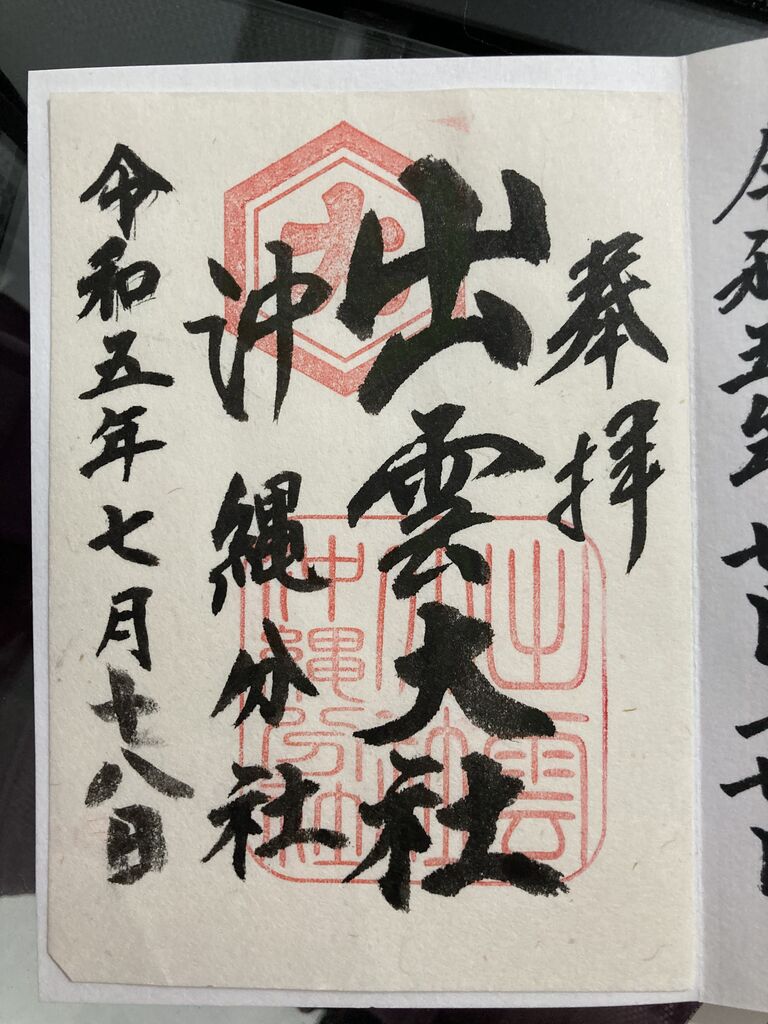 奉拝
出雲大社
沖縄分社
令和五年七月十八日
大
出雲
大社
沖縄分社
令和五年七月十七日